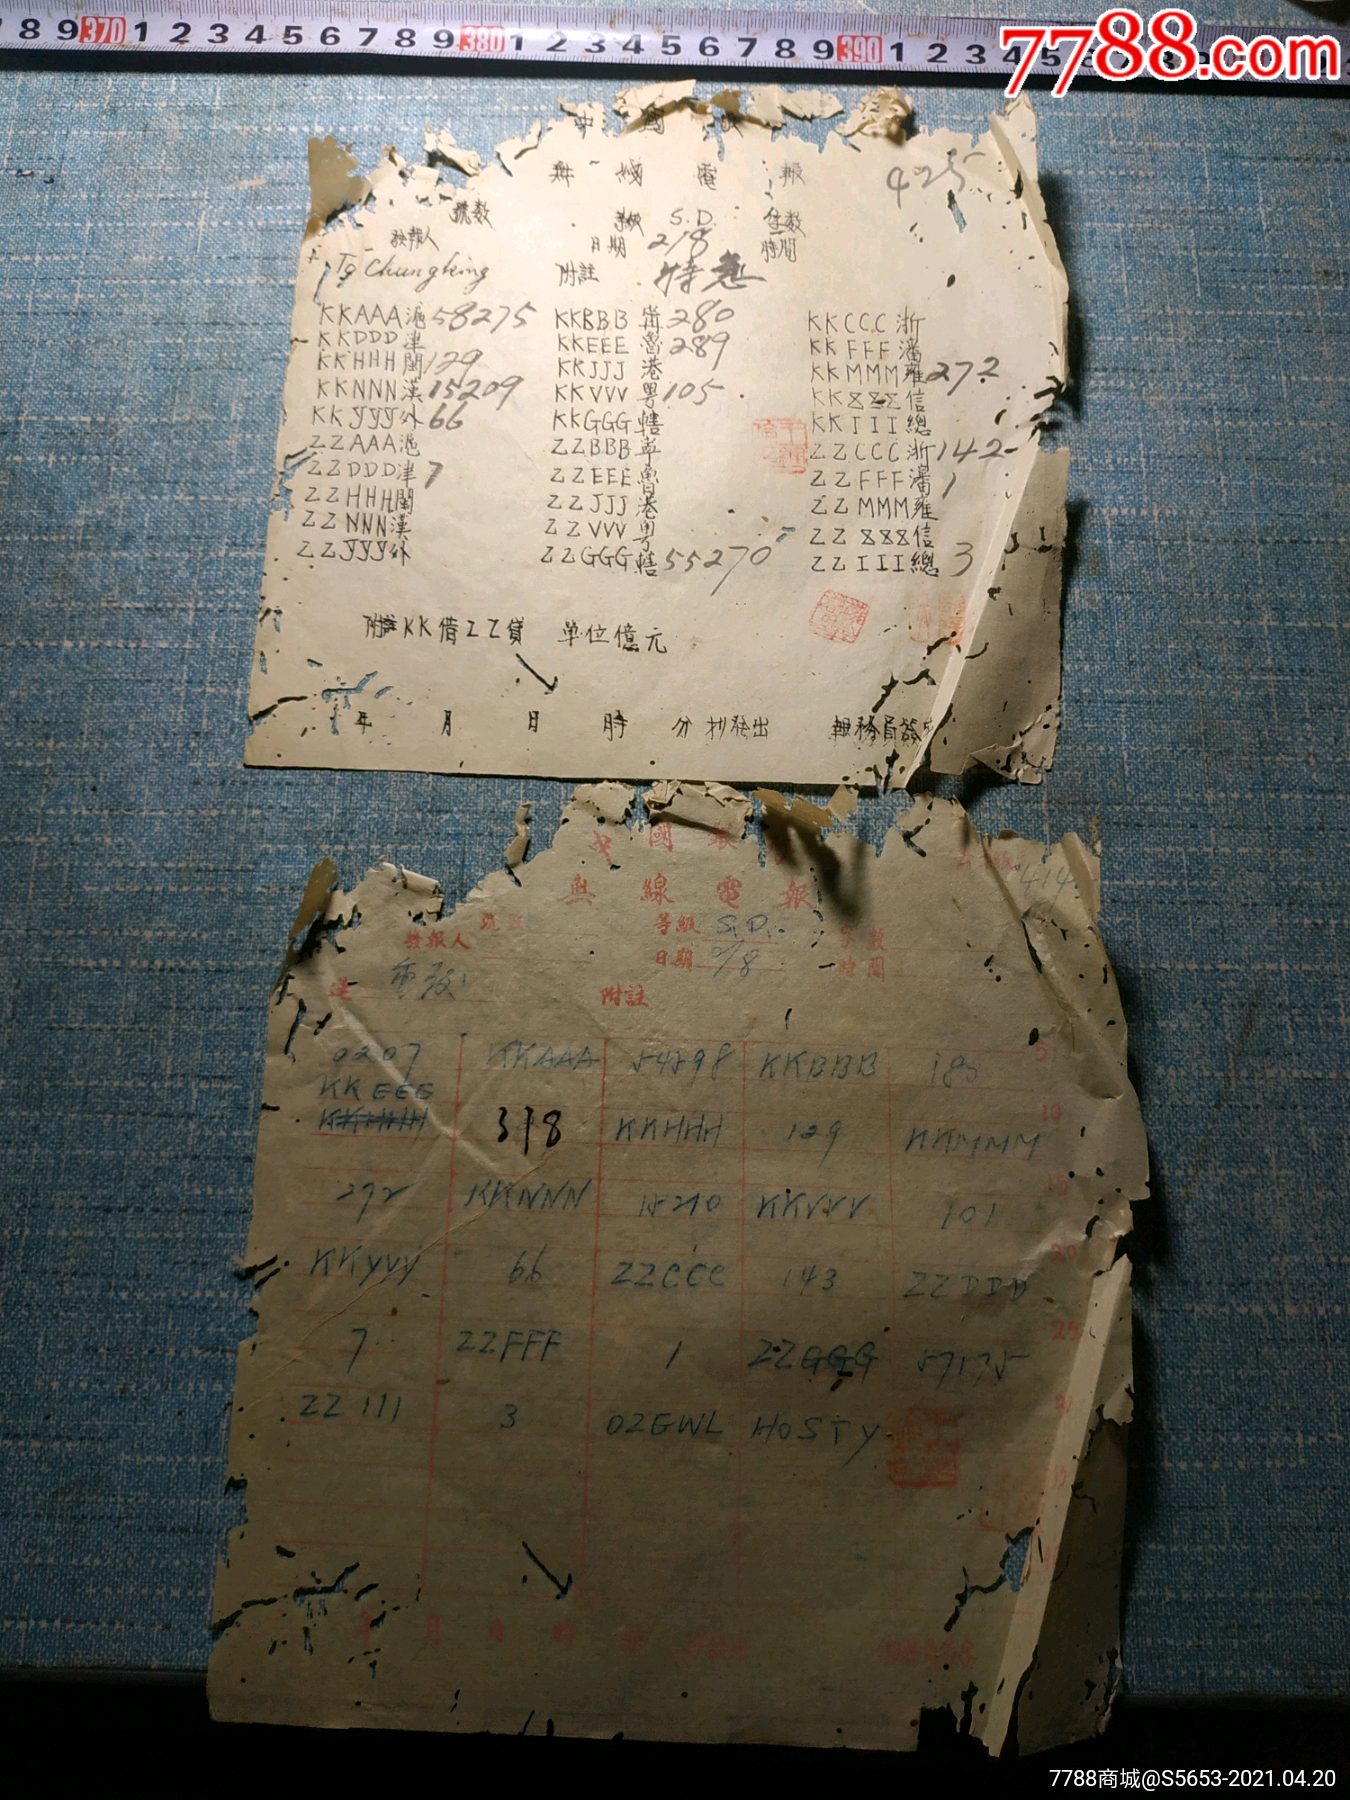 8 9 370 1 2 3 4 5 6 7 8 9 380 1 2 3 4 5 6 7 8 9 390 1 2 3 4 5
7788.com
中 國
無 綫 電 報
425
號數 等級 S.D. 字数
發報人 日期 2/8 時間
To Chungking 附註 特急
KKAAA滬58275 KKBBB 280 KKCCC 浙
KKDDD津 KKEEE 魯289 KKFFF 瀋
KKHHH閩129 KKJJJ 港 KKMMM雍272
KKNNN漢15209 KKVVV 粤105 信
KKYYY外66 KKGGG轄 KKIII總
ZZAAA滬 ZZBBB ZZCCC浙142
ZZDDD津7 ZZEEE魯 ZZFFF瀋1
ZZHHH閩 ZZJJJ港 ZZMMM雍
ZZNNN漢 ZZVVV粤 信
ZZYYY外 ZZGGG轄55270 ZZIII總3
附註KK借ZZ貸 单位億元
年 月 日 時 分抄發出 報務員簽
中 國 銀
無 線 電 報
414
號 等級 S.D. 字數
發報人 日期 /8 時間
送 重 附註
0207 KKAAA 54598 KKBBB 5
KKEEE
KKHHH 318 KKHHH 129 KKMMM 10
272 KKNNN 15210 KKVVV 101 15
KKYYY 66 ZZCCC 143 ZZDDD 20
7 ZZFFF 1 ZZGGG 57175 25
ZZ111 3 OZGWL HOSTY
年 月 日 時
7788商城@S5653-2021.04.20